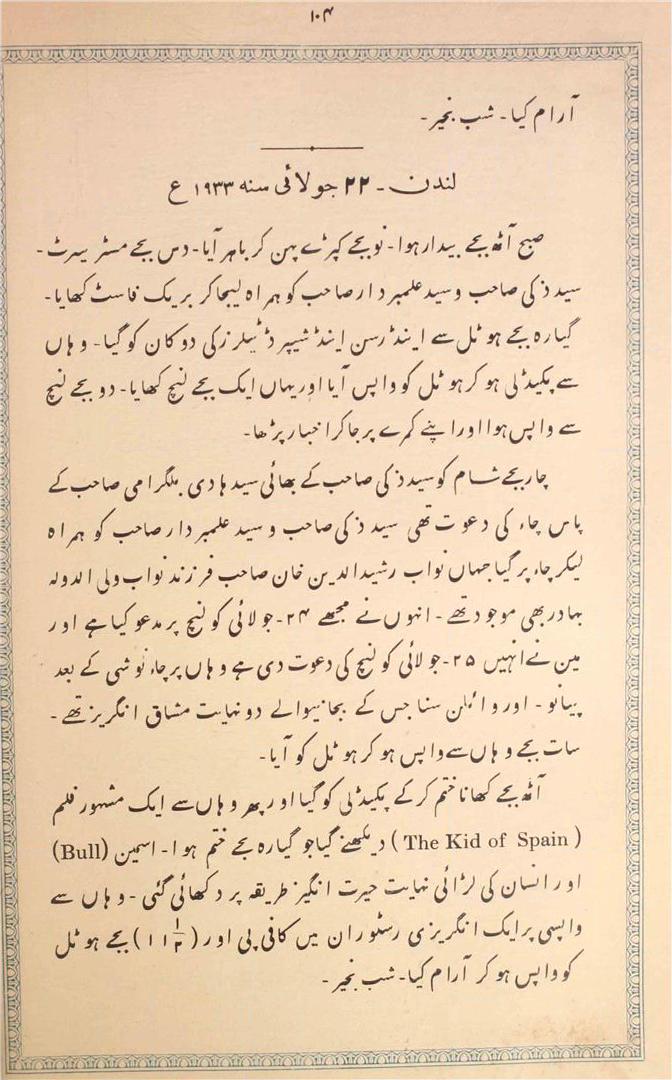 ۱۰۴
آرام کیا۔ شب بخیر۔
لندن۔ ۲۲ جولائی سنہ ۱۹۳۳ ع
صبح آٹھ بجے بیدار ہوا۔ نو بجے کپڑے پہن کر باہر آیا۔ دس بجے مسٹر بیرٹ۔
سید ذکی صاحب و سید علمبردار صاحب کو ہمراہ لیجا کر بریک فاسٹ کھایا۔
گیارہ بجے ہوٹل سے اینڈرسن اینڈ شیپرڈ ٹیلرز کی دوکان کو گیا۔ وہاں
سے پکیڈلی ہو کر ہوٹل کو واپس آیا اور یہاں ایک بجے لنچ کھایا۔ دو بجے لنچ
سے واپس ہوا اور اپنے کمرے پر جا کر اخبار پڑھا۔
چار بجے شام کو سید ذکی صاحب کے بھائی سید ہادی بلگرامی صاحب کے
پاس چاء کی دعوت تھی سید ذکی صاحب و سید علمبردار صاحب کو ہمراہ
لیکر چاء پر گیا جہاں نواب رشید الدین خان صاحب فرزند نواب ولی الدولہ
بہادر بھی موجود تھے۔ انہوں نے مجھے ۲۴۔ جولائی کو لنچ پر مدعو کیا ہے اور
مین نے انہیں ۲۵۔ جولائی کو لنچ کی دعوت دی ہے وہاں پر چاء نوشی کے بعد
پیانو۔ اور وائلن سنا جس کے بجانیوالے دو نہایت مشاق انگریز تھے۔
سات بجے وہاں سے واپس ہو کر ہوٹل کو آیا۔
آٹھ بجے کھانا ختم کر کے پکیڈلی کو گیا اور پھر وہاں سے ایک مشہور فلم
(The Kid of Spain) دیکھنے گیا جو گیارہ بجے ختم ہوا۔ اسمین (Bull)
اور انسان کی لڑائی نہایت حیرت انگیز طریقہ پر دکھائی گئی۔ وہاں سے
واپسی پر ایک انگریزی رسٹوران میں کافی پی اور (۱۱ ۱/۲) بجے ہوٹل
کو واپس ہو کر آرام کیا۔ شب بخیر۔